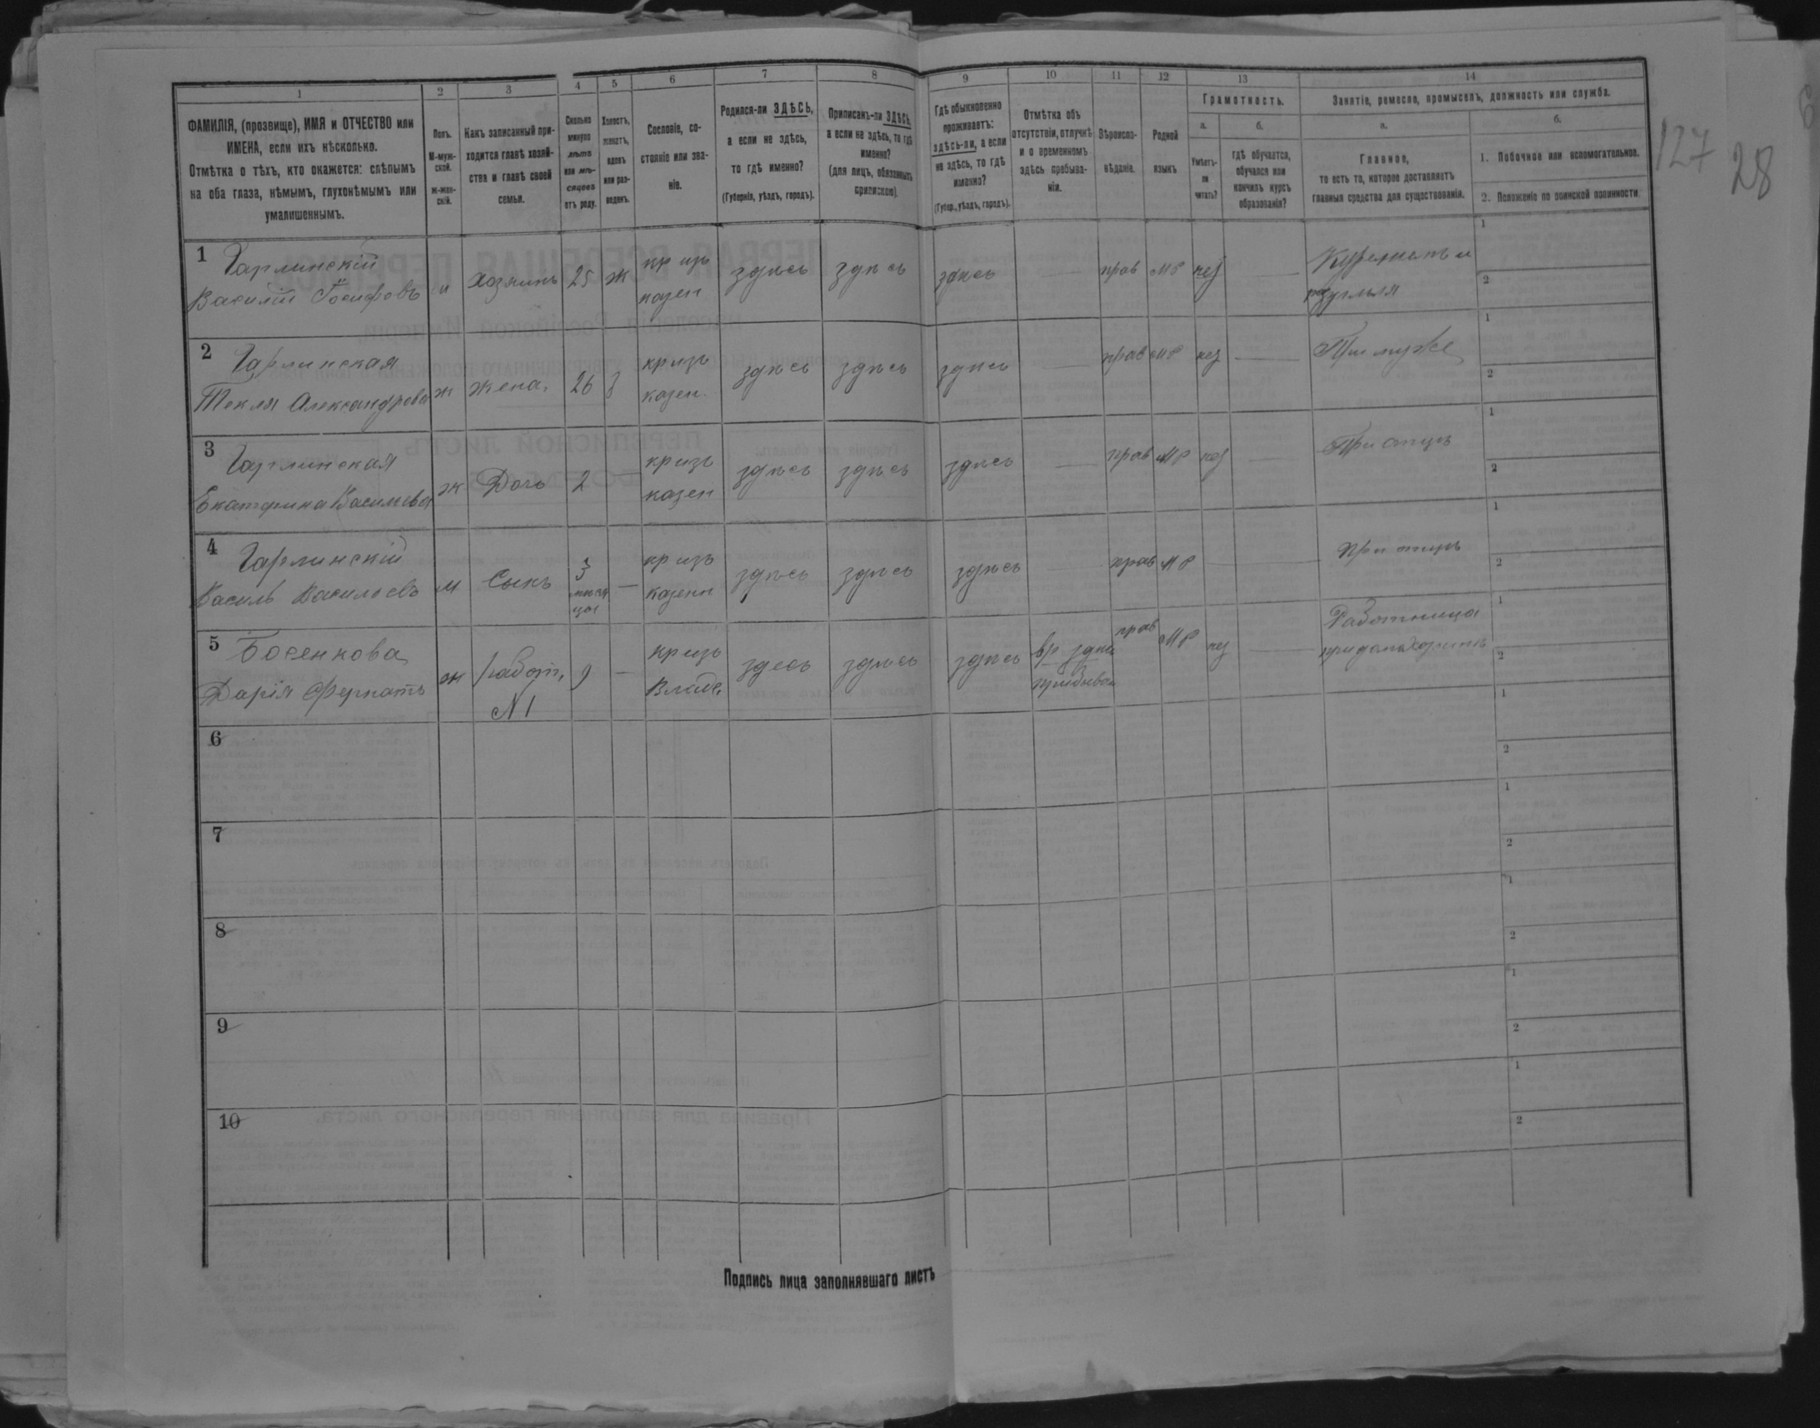 1 2 3 4 5 6 7 8 9 10 11 12 13 14
ФАМИЛІЯ, (прозвище), ИМЯ и ОТЧЕСТВО или
ИМЕНА, если ихъ нѣсколько.
Отмѣтка о тѣхъ, кто окажется: слѣпымъ
на оба глаза, нѣмымъ, глухонѣмымъ или
умалишеннымъ.
Полъ.
М-муж-
ской.
ж-жен-
скій.
Какъ записанный при-
ходится главѣ хозяй-
ства и главѣ своей
семьи.
Сколько
минуло
лѣтъ
или мѣ-
сяцевъ
отъ роду.
Холостъ,
женатъ,
вдовъ
или раз-
веденъ.
Сословіе, со-
стояніе или зва-
ніе.
Родился-ли ЗДѢСЬ,
а если не здѣсь,
то гдѣ именно?
(Губернія, уѣздъ, городъ).
Приписанъ-ли ЗДѢСЬ,
а если не здѣсь, то гдѣ
именно?
(для лицъ, обязанныхъ
припиской).
Гдѣ обыкновенно
проживаетъ:
здѣсь-ли, а если
не здѣсь, то гдѣ
именно?
(Губер., уѣздъ, городъ).
Отмѣтка объ
отсутствіи, отлучкѣ
и о временномъ
здѣсь пребыва-
ніи.
Вѣроиспо-
вѣданіе.
Родной
языкъ
Грамотность.
а.
Умѣетъ-
ли
читать?
б.
гдѣ обучается,
обучался или
кончилъ курсъ
образованія?
Занятіе, ремесло, промыселъ, должность или служба.
а.
Главное,
то есть то, которое доставляетъ
главныя средства для существованія.
б.
1. Побочное или вспомогательное.
2. Положеніе по воинской повинности.
127 28
1 Гарлинскій
Василій Іосифовъ м хозяинъ 25 ж кр изъ казен здѣсь здѣсь здѣсь — прав мр —
2 Гарлинская
Текля Александрова ж жена 26 з кр изъ казен здѣсь здѣсь здѣсь — прав мр — При мужѣ
3 Гарлинская
Екатерина Васильева ж Дочь 2 — кр изъ казен здѣсь здѣсь здѣсь — прав мр — При отцѣ
4 Гарлинскій
Василь Васильевъ м Сынъ 3 — кр изъ казен здѣсь здѣсь здѣсь — прав мр — При отцѣ
5 Босенкова
Дарія ж работ. 9 — кр изъ Влад. здесь здѣсь здѣсь вр здѣсь прав мр — Работница
№1
6
7
8
9
10
Подпись лица заполнявшаго листъ